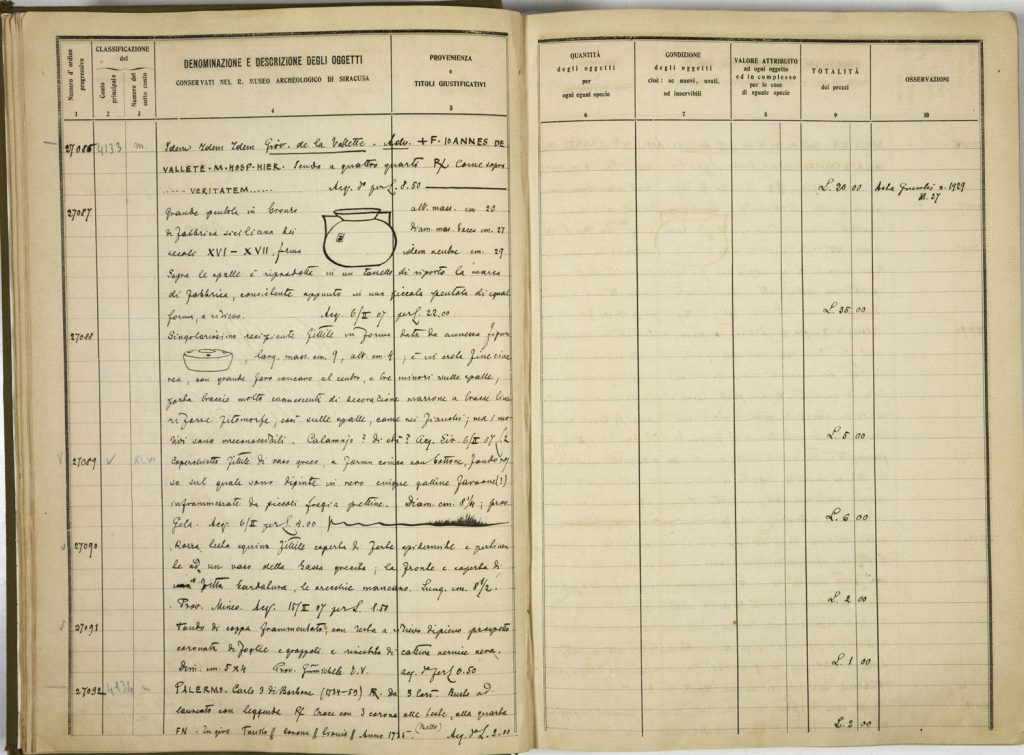 Numero d'ordine progressivo
CLASSIFICAZIONE
del
Conto principale
Numero del sotto conto
DENOMINAZIONE E DESCRIZIONE DEGLI OGGETTI
CONSERVATI NEL R. MUSEO ARCHEOLOGICO DI SIRACUSA
PROVENIENZA
e
TITOLI GIUSTIFICATIVI
1 2 3 4 5
27086 4133 m. Idem Idem Idem Giov. de la Vallette. Adv. + F. IOANNES DE
VALLETE. M. HOSP. HIER. Scudo a quattro quarti R/ Come sopra
VERITATEM...... Acq. d° per L. 8.50
27087 Grande pentola in bronzo alt. mass. cm 20
di fabbrica siciliana dei diam. mas. cm. 27
secoli XVI - XVII, forma idem ventre cm. 29
Sopra le spalle è riprodotta in un tassello di riporto la marca
di fabbrica, consistente appunto in una piccola pentola di egual
forma, a rilievo. Acq. 6/II 07 per L. 22.00
27088 Singolarissimo recipiente fittile in forma data da annessa figura
, larg. mass. cm. 9, alt. cm. 4 ; è di creta fine cine
rea, con grande foro concavo al centro, e tre minori sulle spalle,
porta traccie molto evanescenti di decorazione marrone a fasce line
ri forse fitomorfe, così sulle spalle, come nei fianchi; ma i mo-
tivi sono irreconoscibili. Calamajo? Acq. Sir. 6/II 07 L. 2
V 27089 V XLVI Coperchietto fittile di vaso greco, a forma conica con bottone, fondo ros
so sul quale sono dipinte in nero cinque galline faraone (?)
inframmezzate da piccoli fregi a pettine. Diam. cm. 8 1/4; prov.
Gela. Acq. 6/II per L. 4.00
27090 Rozza testa equina fittile coperta di forte epidermide e pertinen-
te ad un vaso della bassa grecità; la fronte è coperta di
fitta bardatura, le orecchie mancano. Lung. cm. 8 1/2.
Prov. Mineo. Acq. 15/II 07 per L. 1.50
27091 Fondo di coppa frammentato; con testa a rilievo di pieno prospetto
coronata di foglie e grappoli e rivestita di cattiva vernice nera.
Dim. cm. 5x4 Prov. Gumichele E.V. acq. d° per L. 0.50
27092 4134 m PALERMO. Carlo 3 di Borbone (1734-59) R. da 3 tarì. Busto ad.
laureato con leggenda R/ Croce con 3 corone alle teste, alla quarta
FN. In giro Anno 1735. (Rotto) Acq. d° L. 2.00
QUANTITÀ
degli oggetti
per
ogni egual specie
CONDIZIONE
degli oggetti
cioè: se nuovi, usati,
od inservibili
VALORE ATTRIBUITO
ad ogni oggetto
ed in complesso
per le cose
di eguale specie
TOTALITÀ
dei prezzi
OSSERVAZIONI
6 7 8 9 10
L. 20 00 n. 1929
L. 35 00
L. 5 00
L. 6 00
L. 2 00
L. 1 00
L. 2 00